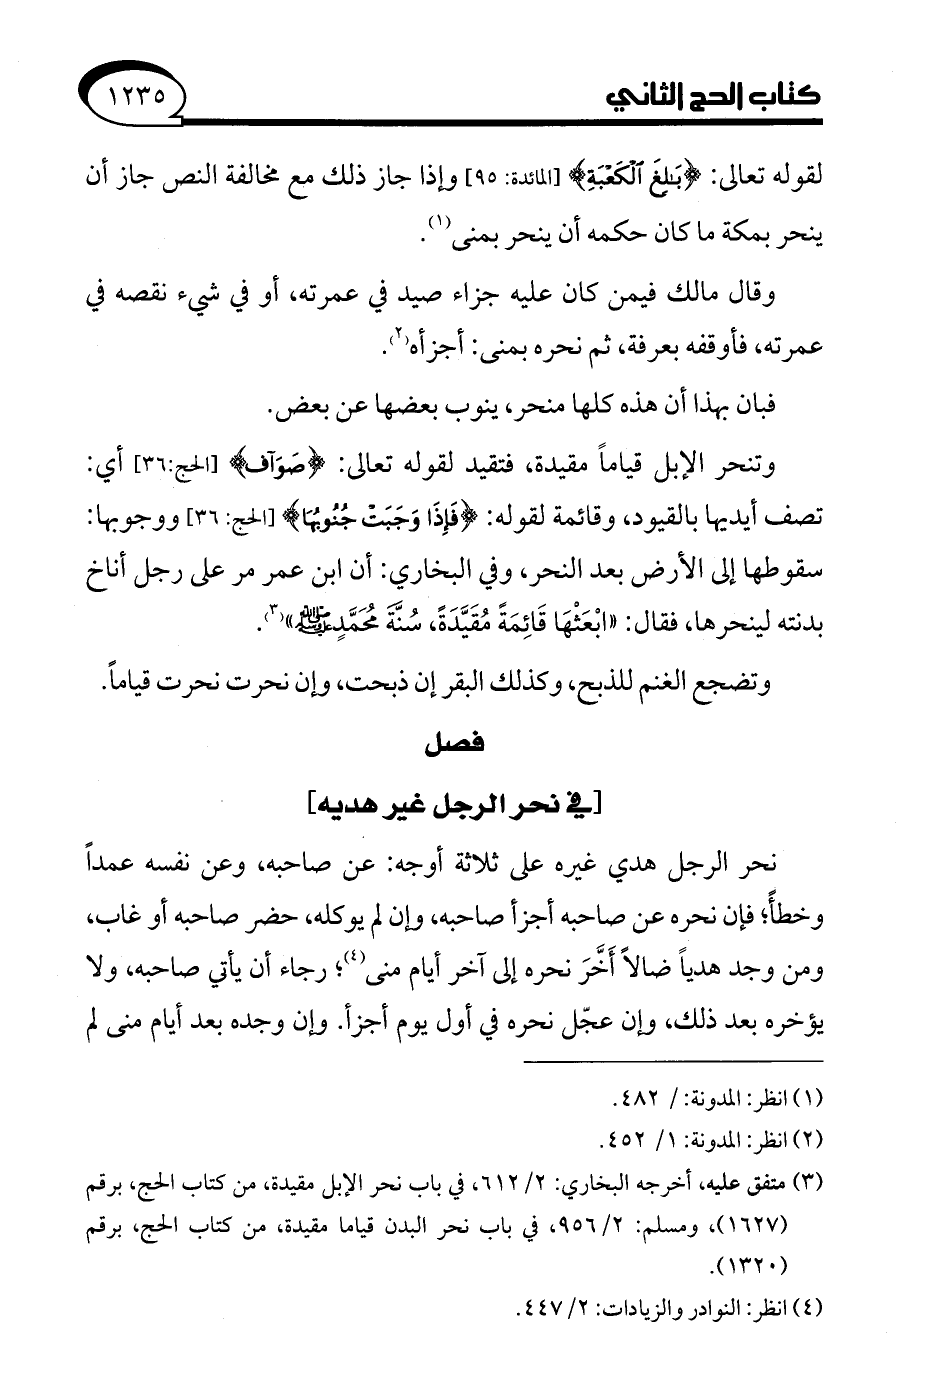 كتاب الحج الثاني
١٢٣٥
لقوله تعالى: ﴿بَٰلِغَ ٱلْكَعْبَةِ﴾ [المائدة: ٩٥] وإذا جاز ذلك مع مخالفة النص جاز أن
ينحر بمكة ما كان حكمه أن ينحر بمنى(١).
وقال مالك فيمن كان عليه جزاء صيد في عمرته، أو في شيء نقصه في
عمرته، فأوقفه بعرفة، ثم نحره بمنى: أجزأه(٢).
فبان بهذا أن هذه كلها منحر، ينوب بعضها عن بعض.
وتنحر الإبل قياماً مقيدة، فتقيد لقوله تعالى: ﴿صَوَآفَّ﴾ [الحج:٣٦] أي:
تصف أيديها بالقيود، وقائمة لقوله: ﴿فَإِذَا وَجَبَتْ جُنُوبُهَا﴾ [الحج: ٣٦] ووجوبها:
سقوطها إلى الأرض بعد النحر، وفي البخاري: أن ابن عمر مر على رجل أناخ
بدنته لينحرها، فقال: «ابْعَثْهَا قَائِمَةً مُقَيَّدَةً، سُنَّةَ مُحَمَّدٍ ﷺ»(٣).
وتضجع الغنم للذبح، وكذلك البقر إن ذبحت، وإن نحرت نحرت قياماً.
فصل
[في نحر الرجل غير هديه]
نحر الرجل هدي غيره على ثلاثة أوجه: عن صاحبه، وعن نفسه عمداً
وخطأً؛ فإن نحره عن صاحبه أجزأ صاحبه، وإن لم يوكله، حضر صاحبه أو غاب،
ومن وجد هدياً ضالاً أَخَّرَ نحره إلى آخر أيام منى(٤)؛ رجاء أن يأتي صاحبه، ولا
يؤخره بعد ذلك، وإن عجّل نحره في أول يوم أجزأ. وإن وجده بعد أيام منى لم
(١) انظر: المدونة: / ٤٨٢.
(٢) انظر: المدونة: ١/ ٤٥٢.
(٣) متفق عليه، أخرجه البخاري: ٢/ ٦١٢، في باب نحر الإبل مقيدة، من كتاب الحج، برقم
(١٦٢٧)، ومسلم: ٢/ ٩٥٦، في باب نحر البدن قياما مقيدة، من كتاب الحج، برقم
(١٣٢٠).
(٤) انظر: النوادر والزيادات: ٢/ ٤٤٧.